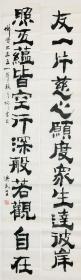 一片慈心願度衆生達彼岸
照五蘊皆空行深般若觀自在